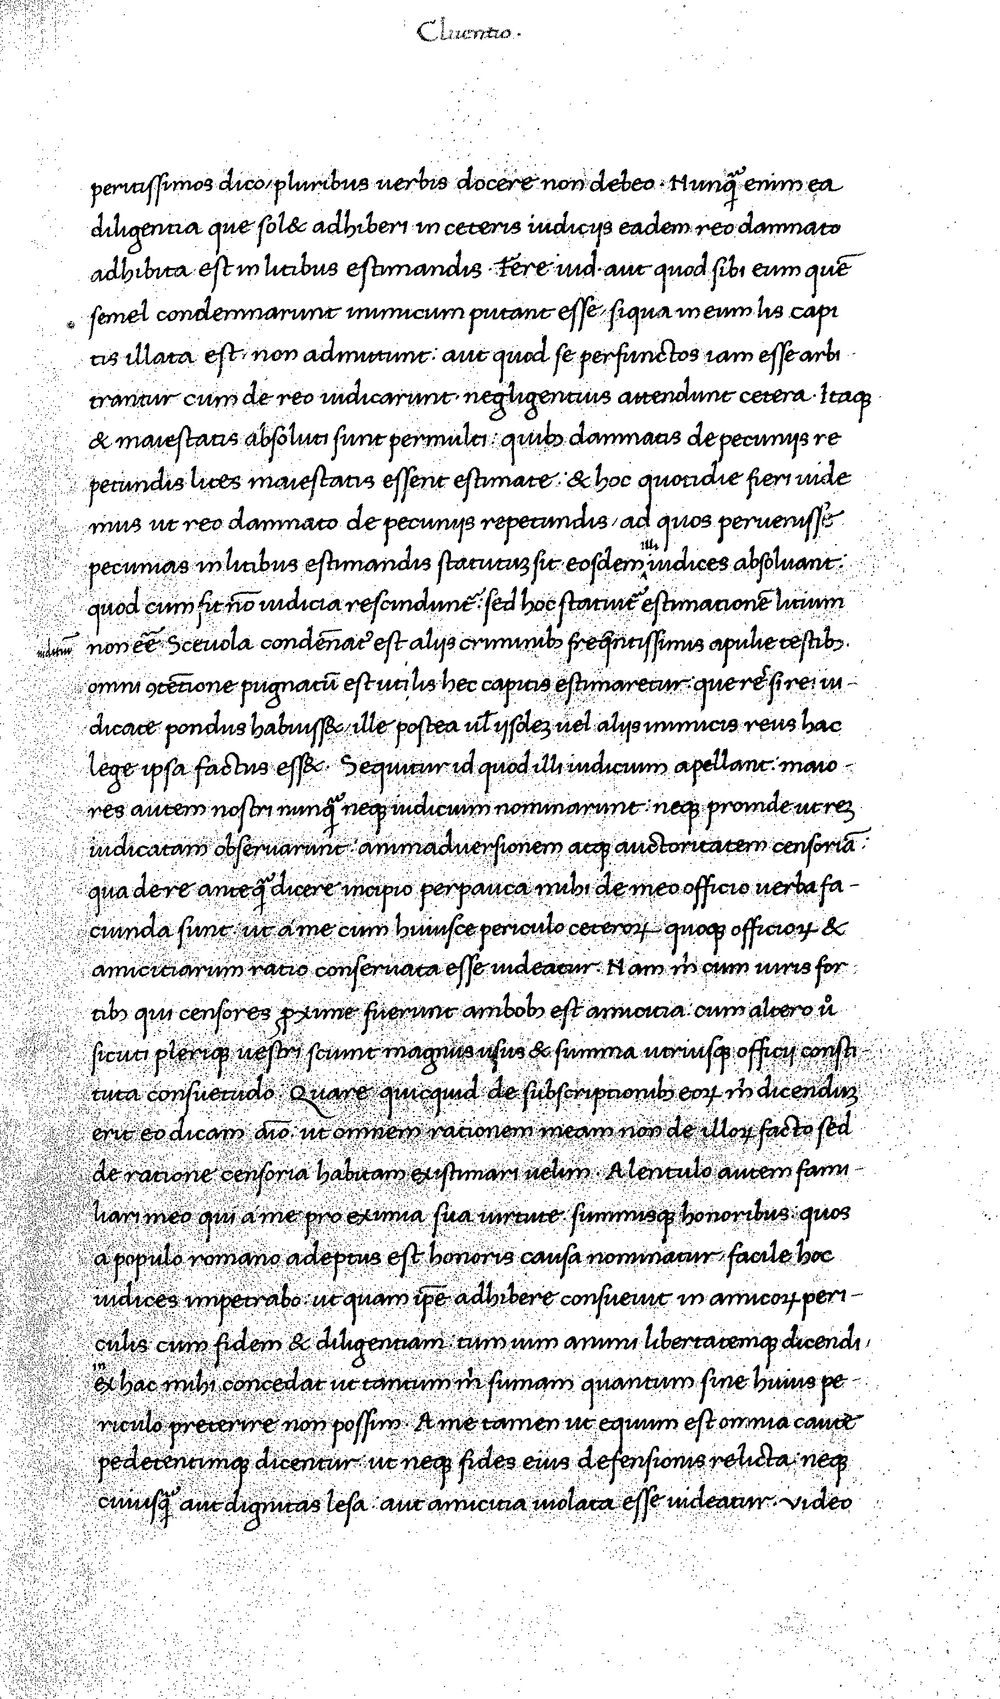 Cluentio.
peritissimos dico, pluribus uerbis docere non debeo. Nunq̃ enim ea
diligentia que sol& adhiberi in ceteris iudicijs eadem reo damnato
adhibita est in litibus estimandis. Fere iud. aut quod sibi eum quē
semel condemnarunt inimicum putant esse, siqua in eum lis capi
tis illata est, non admittunt: aut quod se perfunctos iam esse arbi
trantur cum de reo iudicarunt. negligentius attendunt cetera. Itaqꝫ
& maiestatis absoluti sunt permulti: quibꝫ damnatis de pecunijs re
petundis lites maiestatis essent estimate: & hoc quotidie fieri uide
mus ut reo damnato de pecunijs repetundis, ad quos peruenisse
pecunias in litibus estimandis statutuꝫ sit eosdem illi iudices absoluant:
quod cum fit nō iudicia rescindunt̃: sed hoc statuit̃ estimationē litium
non eē. Sceuola condēnatꝰ est alijs criminibꝫ freq̃ntissimis apulie testibꝫ.
omni ꝯtētione pugnatū est uti lis hec capitis estimaretur: que rēs si rei iu-
dicate pondus habuiss&, ille postea ul̃ ijsdeꝫ uel alijs inimicis reus hac
lege ipsa factus ess&. Sequitur id quod illi iudicium apellant: maio-
res autem nostri nunq̃ neqꝫ iudicium nominarunt: neqꝫ proinde ut reꝫ
iudicatam obseruarunt: animaduersionem atqꝫ auctoritatem censoriā:
qua de re anteq̃ dicere incipio perpauca mihi de meo officio uerba fa-
ciunda sunt: ut a me cum huiusce periculo ceteroꝝ quoqꝫ officioꝝ &
amicitiarum ratio conseruata esse uideatur. Nam m̃ cum uiris for
tibꝫ qui censores ꝓxime fuerunt ambobꝫ est amicitia: cum altero ů
sicuti pleriqꝫ uestri sciunt magnus usus & summa utriusqꝫ officij consti
tuta consuetudo. Quare quicquid de subscriptionibꝫ eoꝝ m̃ dicenduꝫ
erit eo dicam aīo. ut omnem rationem meam non de illoꝝ facto sed
de ratione censoria habitam existimari uelim. A lentulo autem fami-
liari meo qui a me pro eximia sua uirtute summisqꝫ honoribus: quos
a populo romano adeptus est honoris causa nominatur, facile hoc
iudices impetrabo: ut quam ip̄e adhibere consueuit in amicoꝝ peri-
culis cum fidem & diligentiam: tum uim animi libertatemqꝫ dicendi,
in
ex hac mihi concedat ut tantum m̃ sumam quantum sine huius pe-
riculo preterire non possim. A me tamen ut equum est omnia caute
pedetentimqꝫ dicentur: ut neqꝫ fides eius defensionis relicta: neqꝫ
cuiusq̃ aut dignitas lesa: aut amicitia uiolata esse uideatur. Video